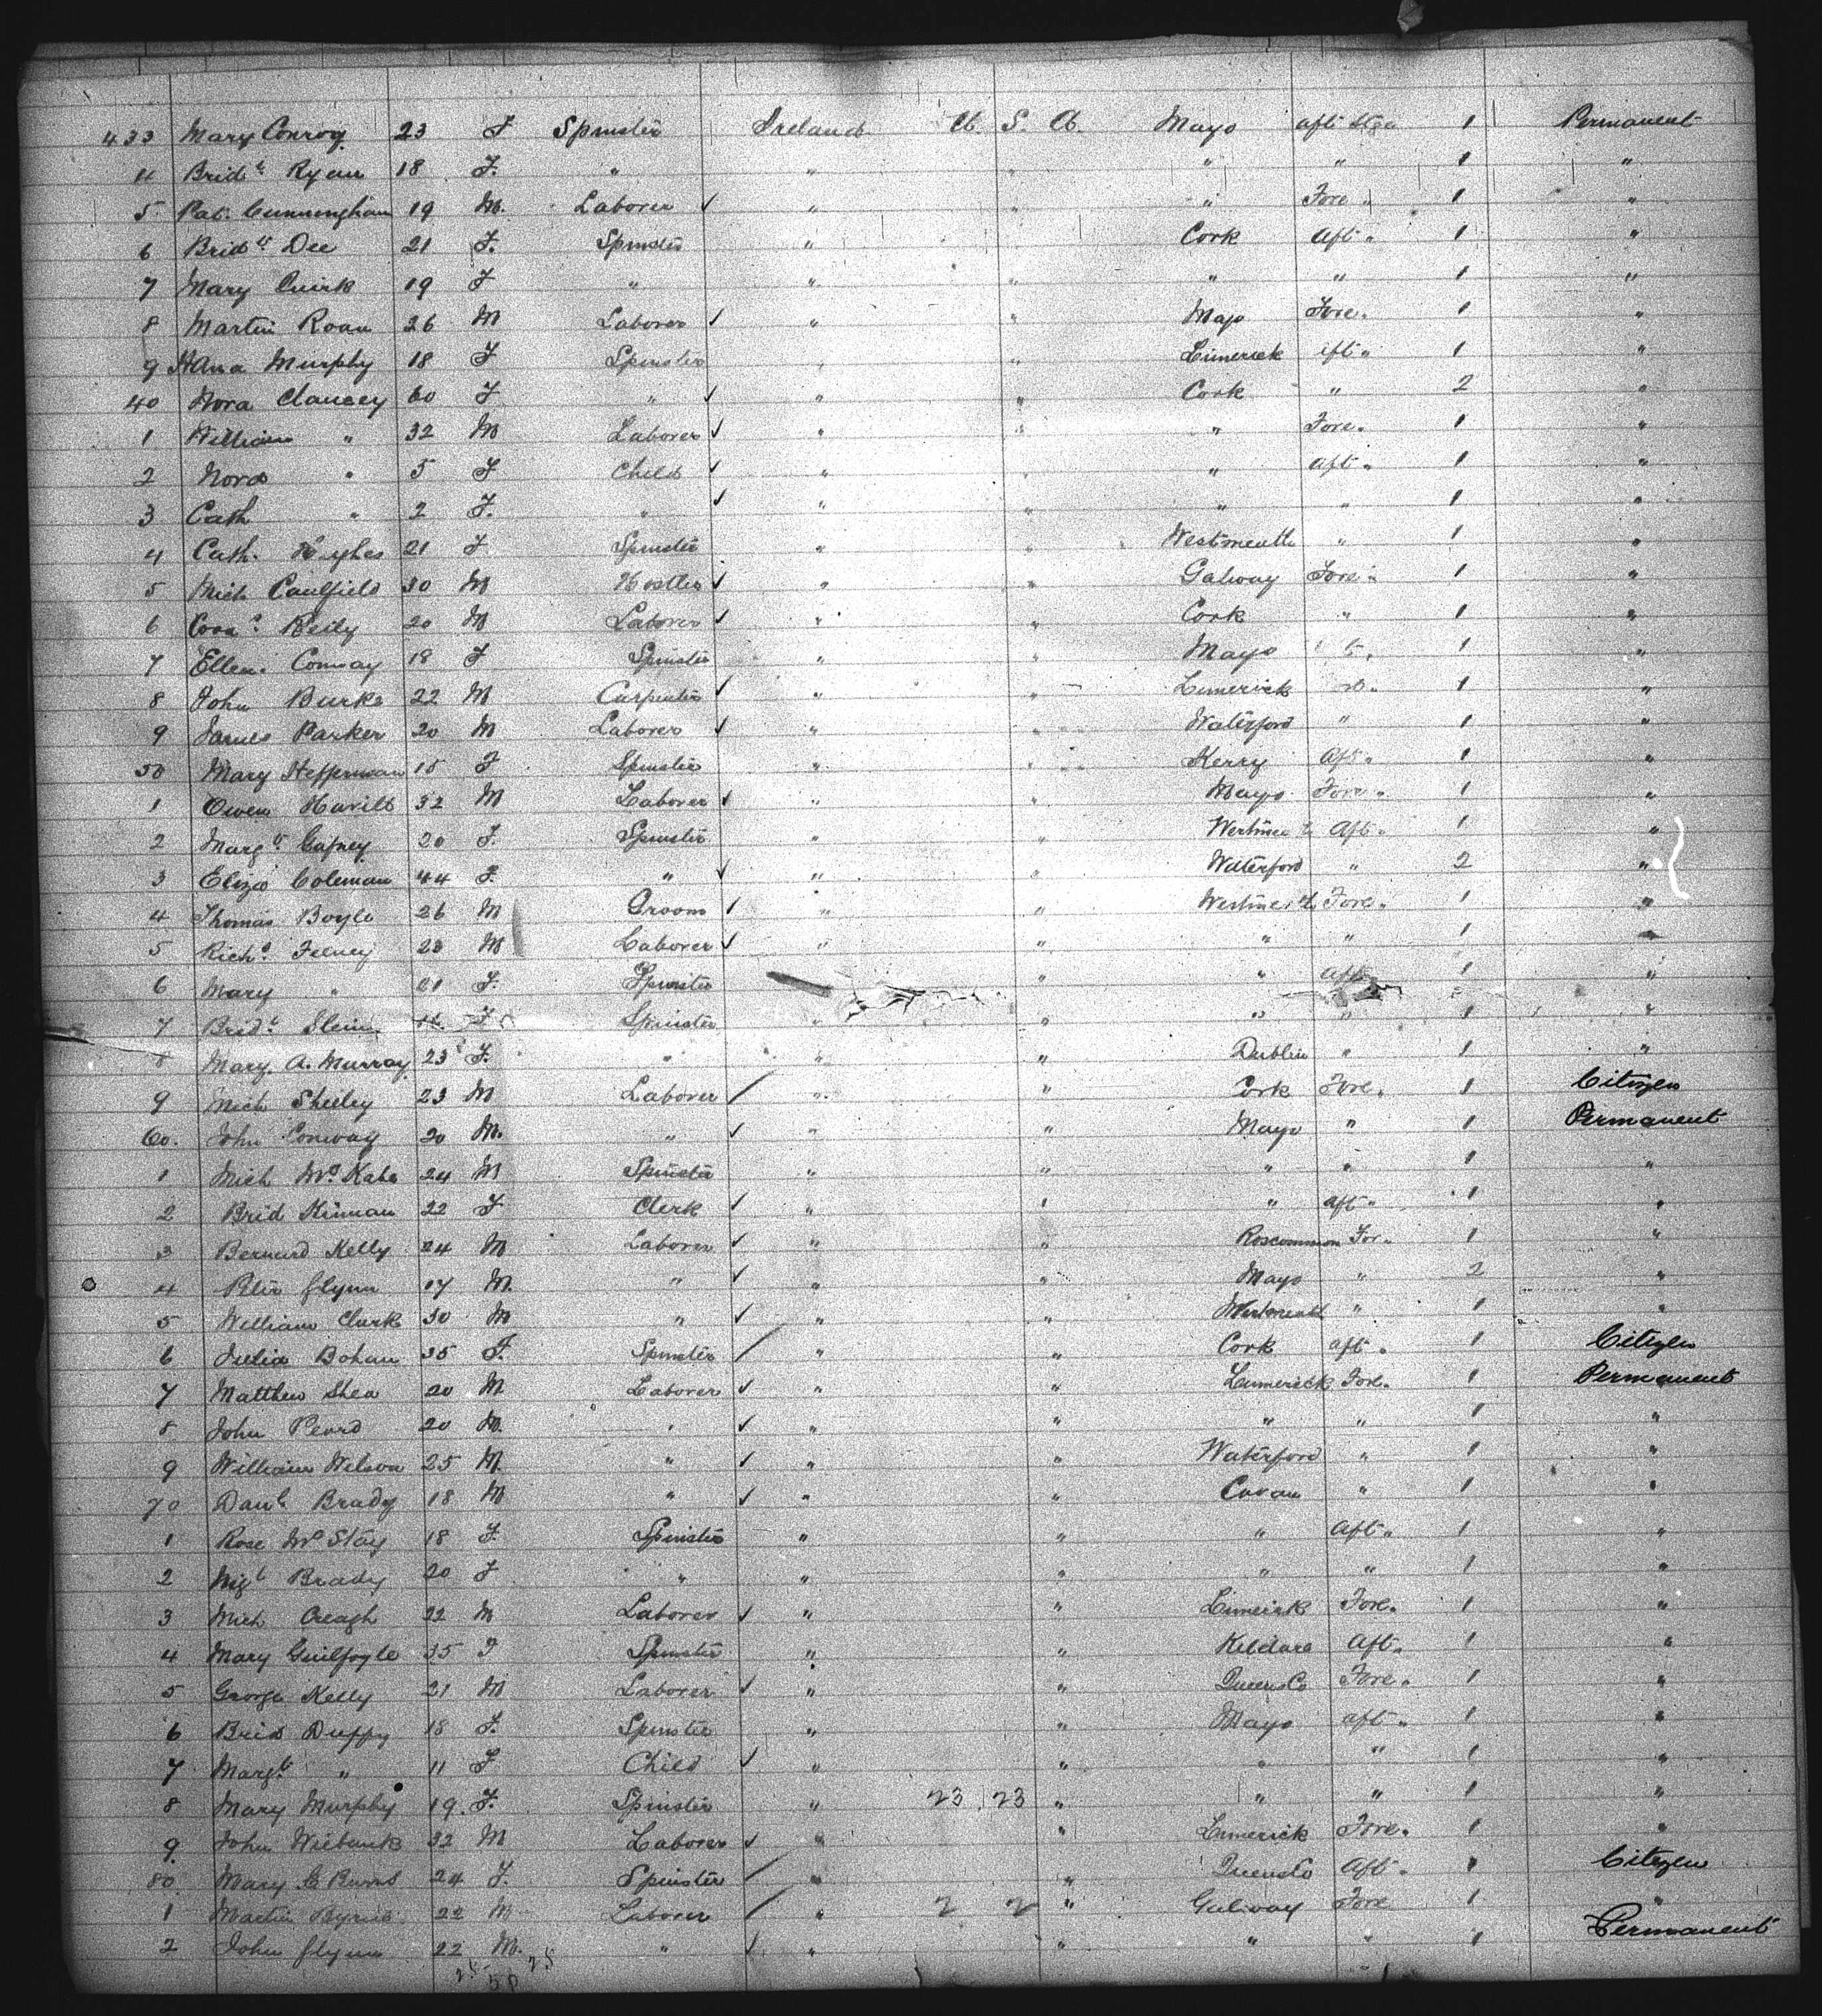 433 Mary Conroy 23 F Spinster Ireland U. S. A. Mayo aft Stge 1 Permanent
4 Brid.t Ryan 18 F. " " " " " 1 "
5 Pat. Cunningham 19 M. Laborer ✓ " " " Fore " 1 "
6 Brid.t Dee 21 F. Spinster " Cork Aft " 1 "
7 Mary Quirk 19 F " " " " " 1 "
8 Martin Roan 26 M Laborer ✓ " " Mayo Fore " 1 "
9 Murphy 18 F Spinster " " Limerick aft " 1 "
40 Nora Clancey 60 F " ✓ " " Cork " 2 "
1 William " 32 M Laborer ✓ " " " Fore " 1 "
2 Nora " 5 F Child ✓ " " " aft " 1 "
3 Cath " 2 F. " ✓ " " " " 1 "
4 Cath. Hughes 21 F Spinster " " Westmeath " 1 "
5 Mich Caulfield 30 M Hostler ✓ " " Galway Fore " 1 "
6 Reily 20 M Laborer ✓ " " Cork " 1 "
7 Ellen Conway 18 F Spinster " " Mayo 1 "
8 John Burke 22 M Carpenter ✓ " " Limerick 1 "
9 James Parker 20 M Laborer ✓ " " Waterford " 1 "
50 Mary Heffernan 15 F Spinster " " Kerry Aft " 1 "
1 Owen 32 M Laborer ✓ " " Mayo Fore " 1 "
2 Marg.t Gafney 20 F. Spinster " " Westmeath Aft " 1 "
3 Eliza Coleman 44 F. " ✓ " " Waterford " 2 "
4 Thomas Boyle 26 M Groom ✓ " " Westmeath Fore " 1 "
5 Rich.d Feeney 23 M Laborer ✓ " " " " 1 "
6 Mary " 21 F. Spinster " " aft 1 "
7 Brid.t F Spinster " " " " 1 "
8 Mary A. Murray 23 F. " " " Dublin " 1 "
9 Mich Sheeley 23 M Laborer / " " Cork Fore " 1 Citizen
60. John Conway 20 M. " ✓ " " Mayo " 1 Permanent
1 Mich McKabe 24 M Spinster " " " " 1 "
2 Brid Kinnan 22 F Clerk ✓ " " " aft " 1 "
3 Bernard Kelly 24 M Laborer ✓ " " Roscommon For " 1 "
4 Peter Glynn 17 M. " ✓ " " Mayo " 2 "
5 William Clark 30 M " ✓ " " Westmeath " 1 "
6 Julia Bohan 35 F. Spinster / " " Cork aft " 1 Citizen
7 Matthew Shea 20 M Laborer ✓ " " Limerick Fore " 1 Permanent
8 John Peard 20 M. " ✓ " " " " 1 "
9 William Wilson 25 M. " ✓ " " Waterford " 1 "
70 Danl. Brady 18 M " ✓ " " Cavan " 1 "
1 Rose McStay 18 F. Spinster " " " Aft " 1 "
2 Mgt Brady 20 F " " " " " 1 "
3 Mich Creagh 22 M Laborer ✓ " " Limerick Fore " 1 "
4 Mary Guilfoyle 35 F Spinster " " Kildare Aft " 1 "
5 George Kelly 21 M Laborer ✓ " " Queens Co Fore " 1 "
6 Brid Duffy 18 F. Spinster " " Mayo aft " 1 "
7 Marg.t " 11 F Child ✓ " " " " 1 "
8 Mary Murphy 19. F. Spinster " 23 23 " " " 1 "
9. John 32 M Laborer ✓ " " Limerick Fore " 1 "
80 Mary Burns 24 F. Spinster / " " Queens Co Aft " 1 Citizen
1 Martin Byrne 22 M Laborer / " 2 2 " Galway Fore 1 "
2 John Glynn 22 M. " ✓ " " " " 1 Permanent
25 50 25